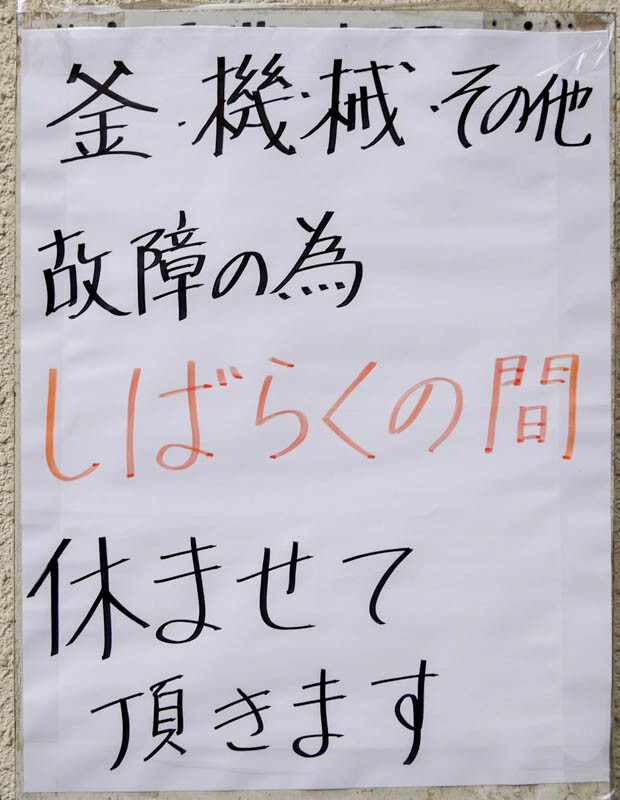 釜・機・械・その他
故障の為
しばらくの間
休ませて
頂きます